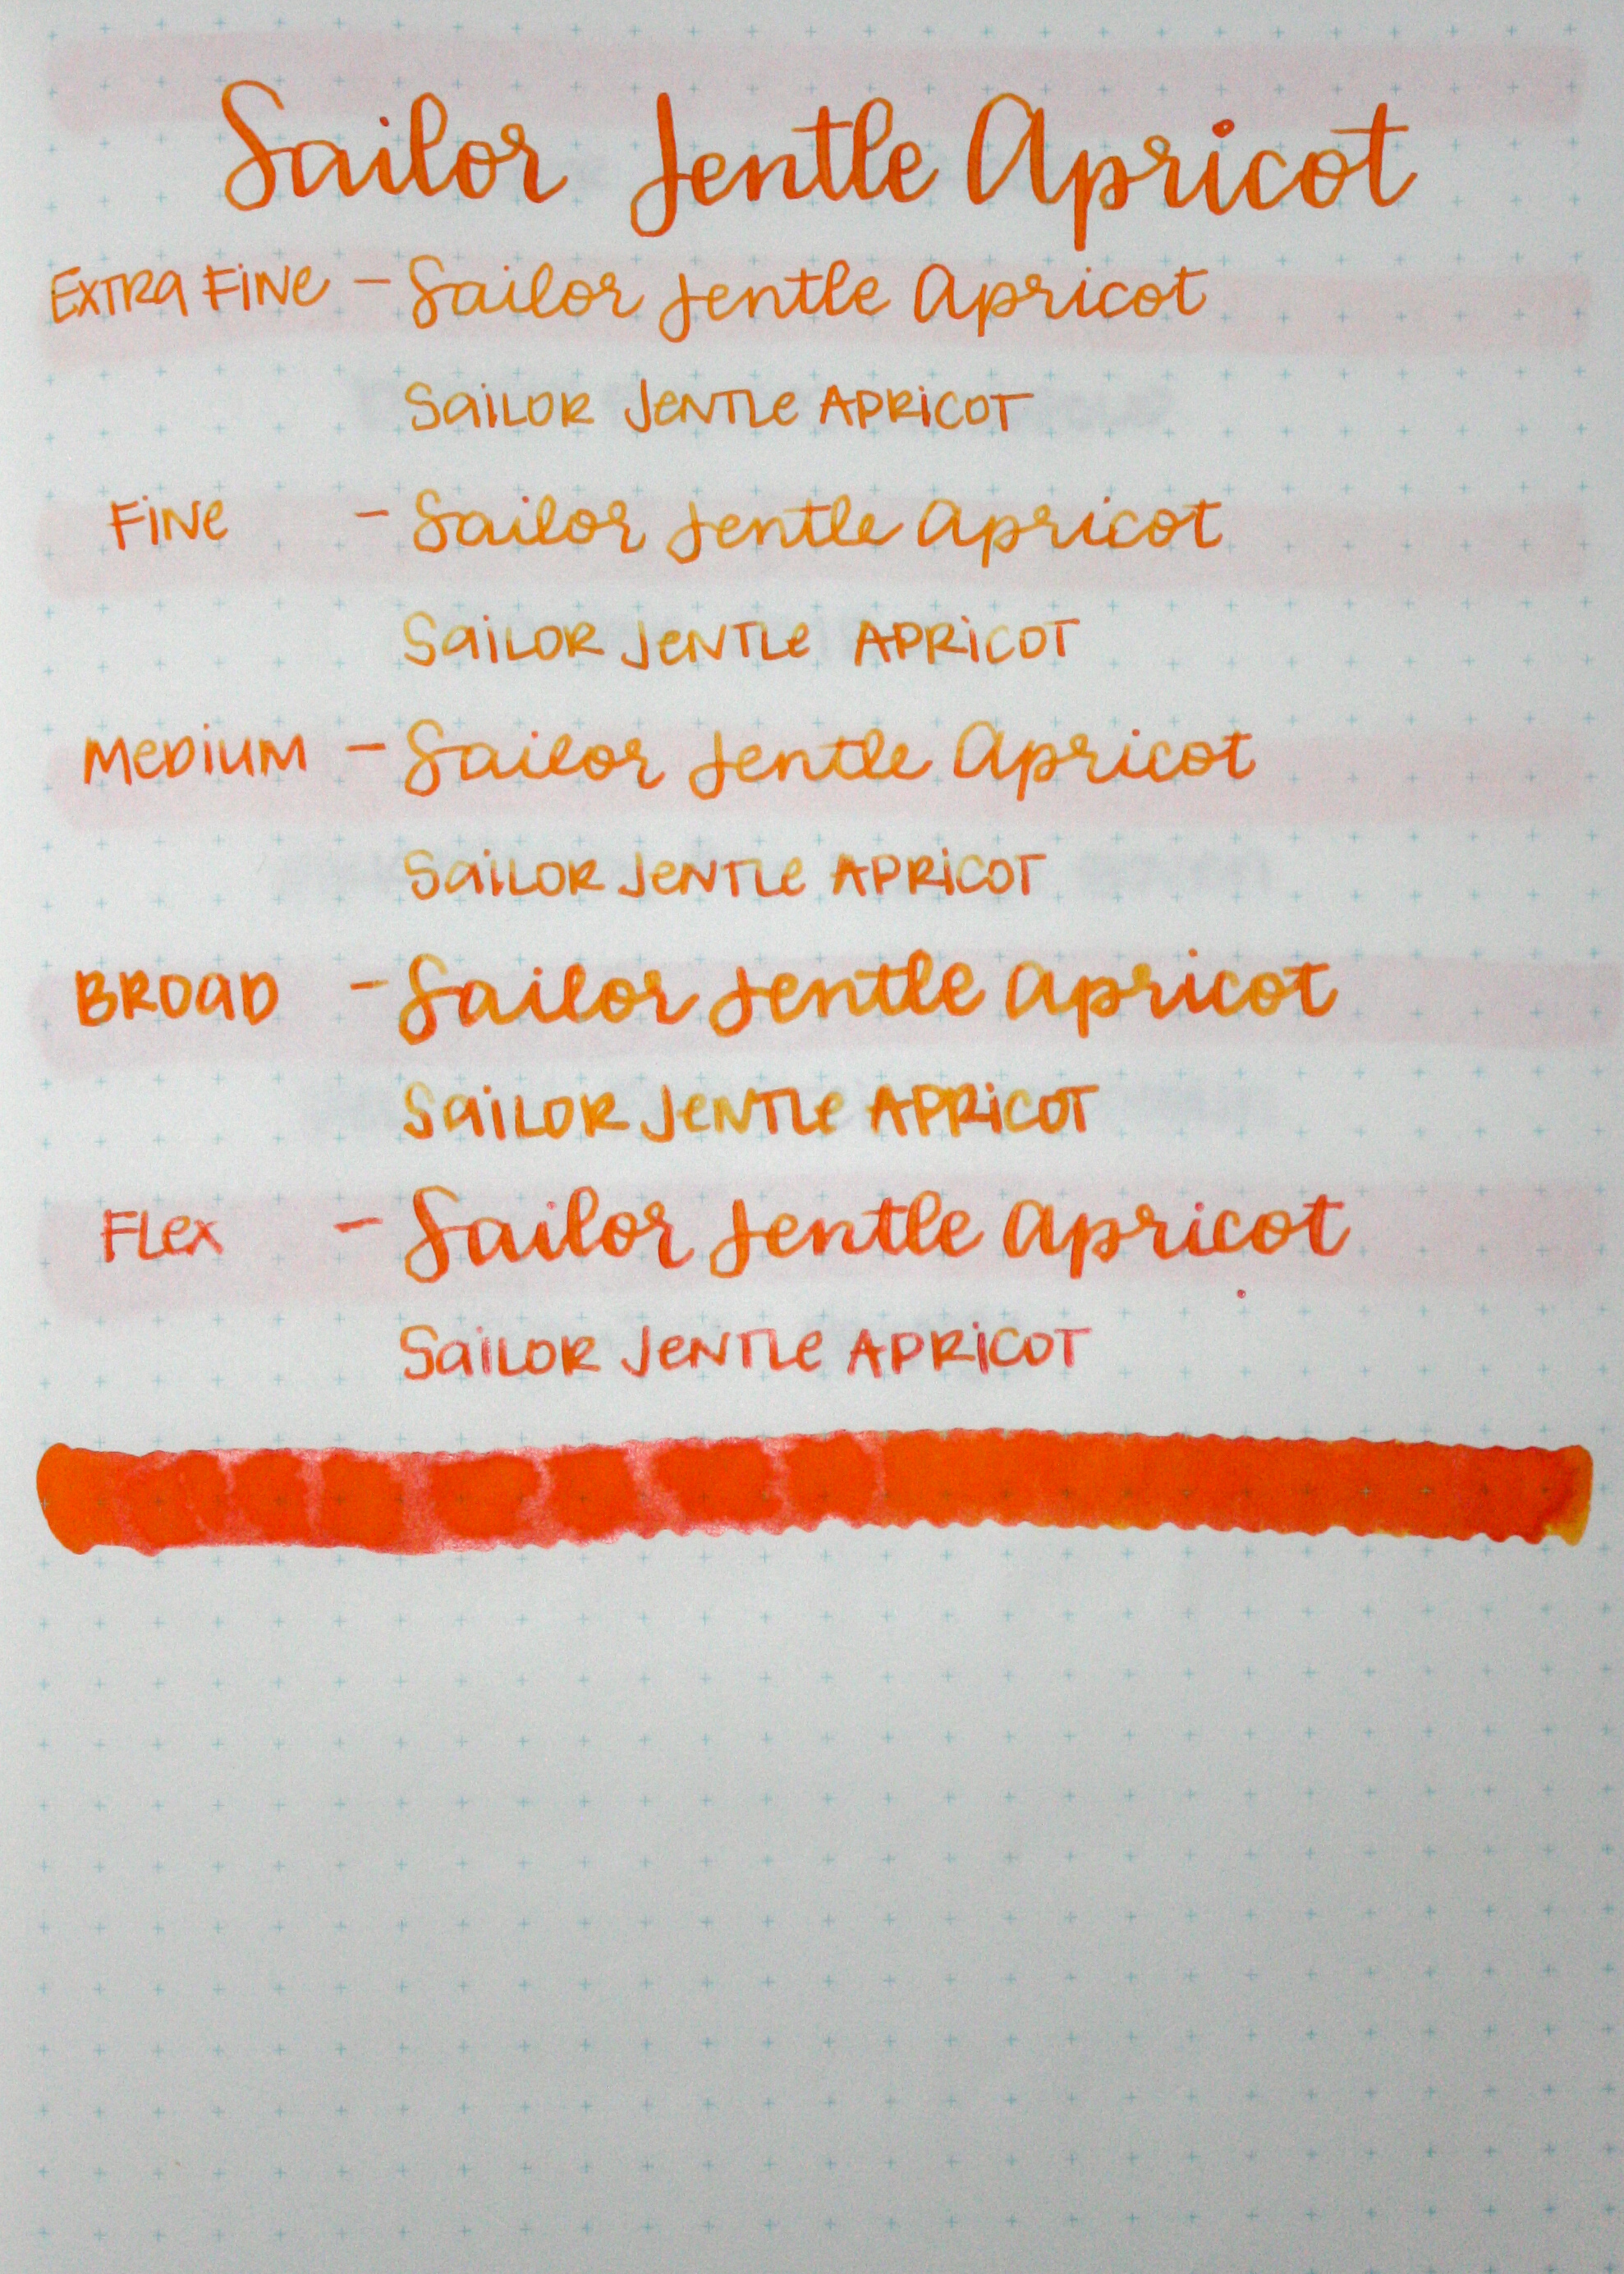 Sailor Jentle Apricot
EXTRA FINE - Sailor Jentle Apricot
SAILOR JENTLE APRICOT
FINE - Sailor Jentle Apricot
SAILOR JENTLE APRICOT
MEDIUM - Sailor Jentle Apricot
SAILOR JENTLE APRICOT
BROAD - Sailor Jentle Apricot
SAILOR JENTLE APRICOT
FLEX - Sailor Jentle Apricot
SAILOR JENTLE APRICOT